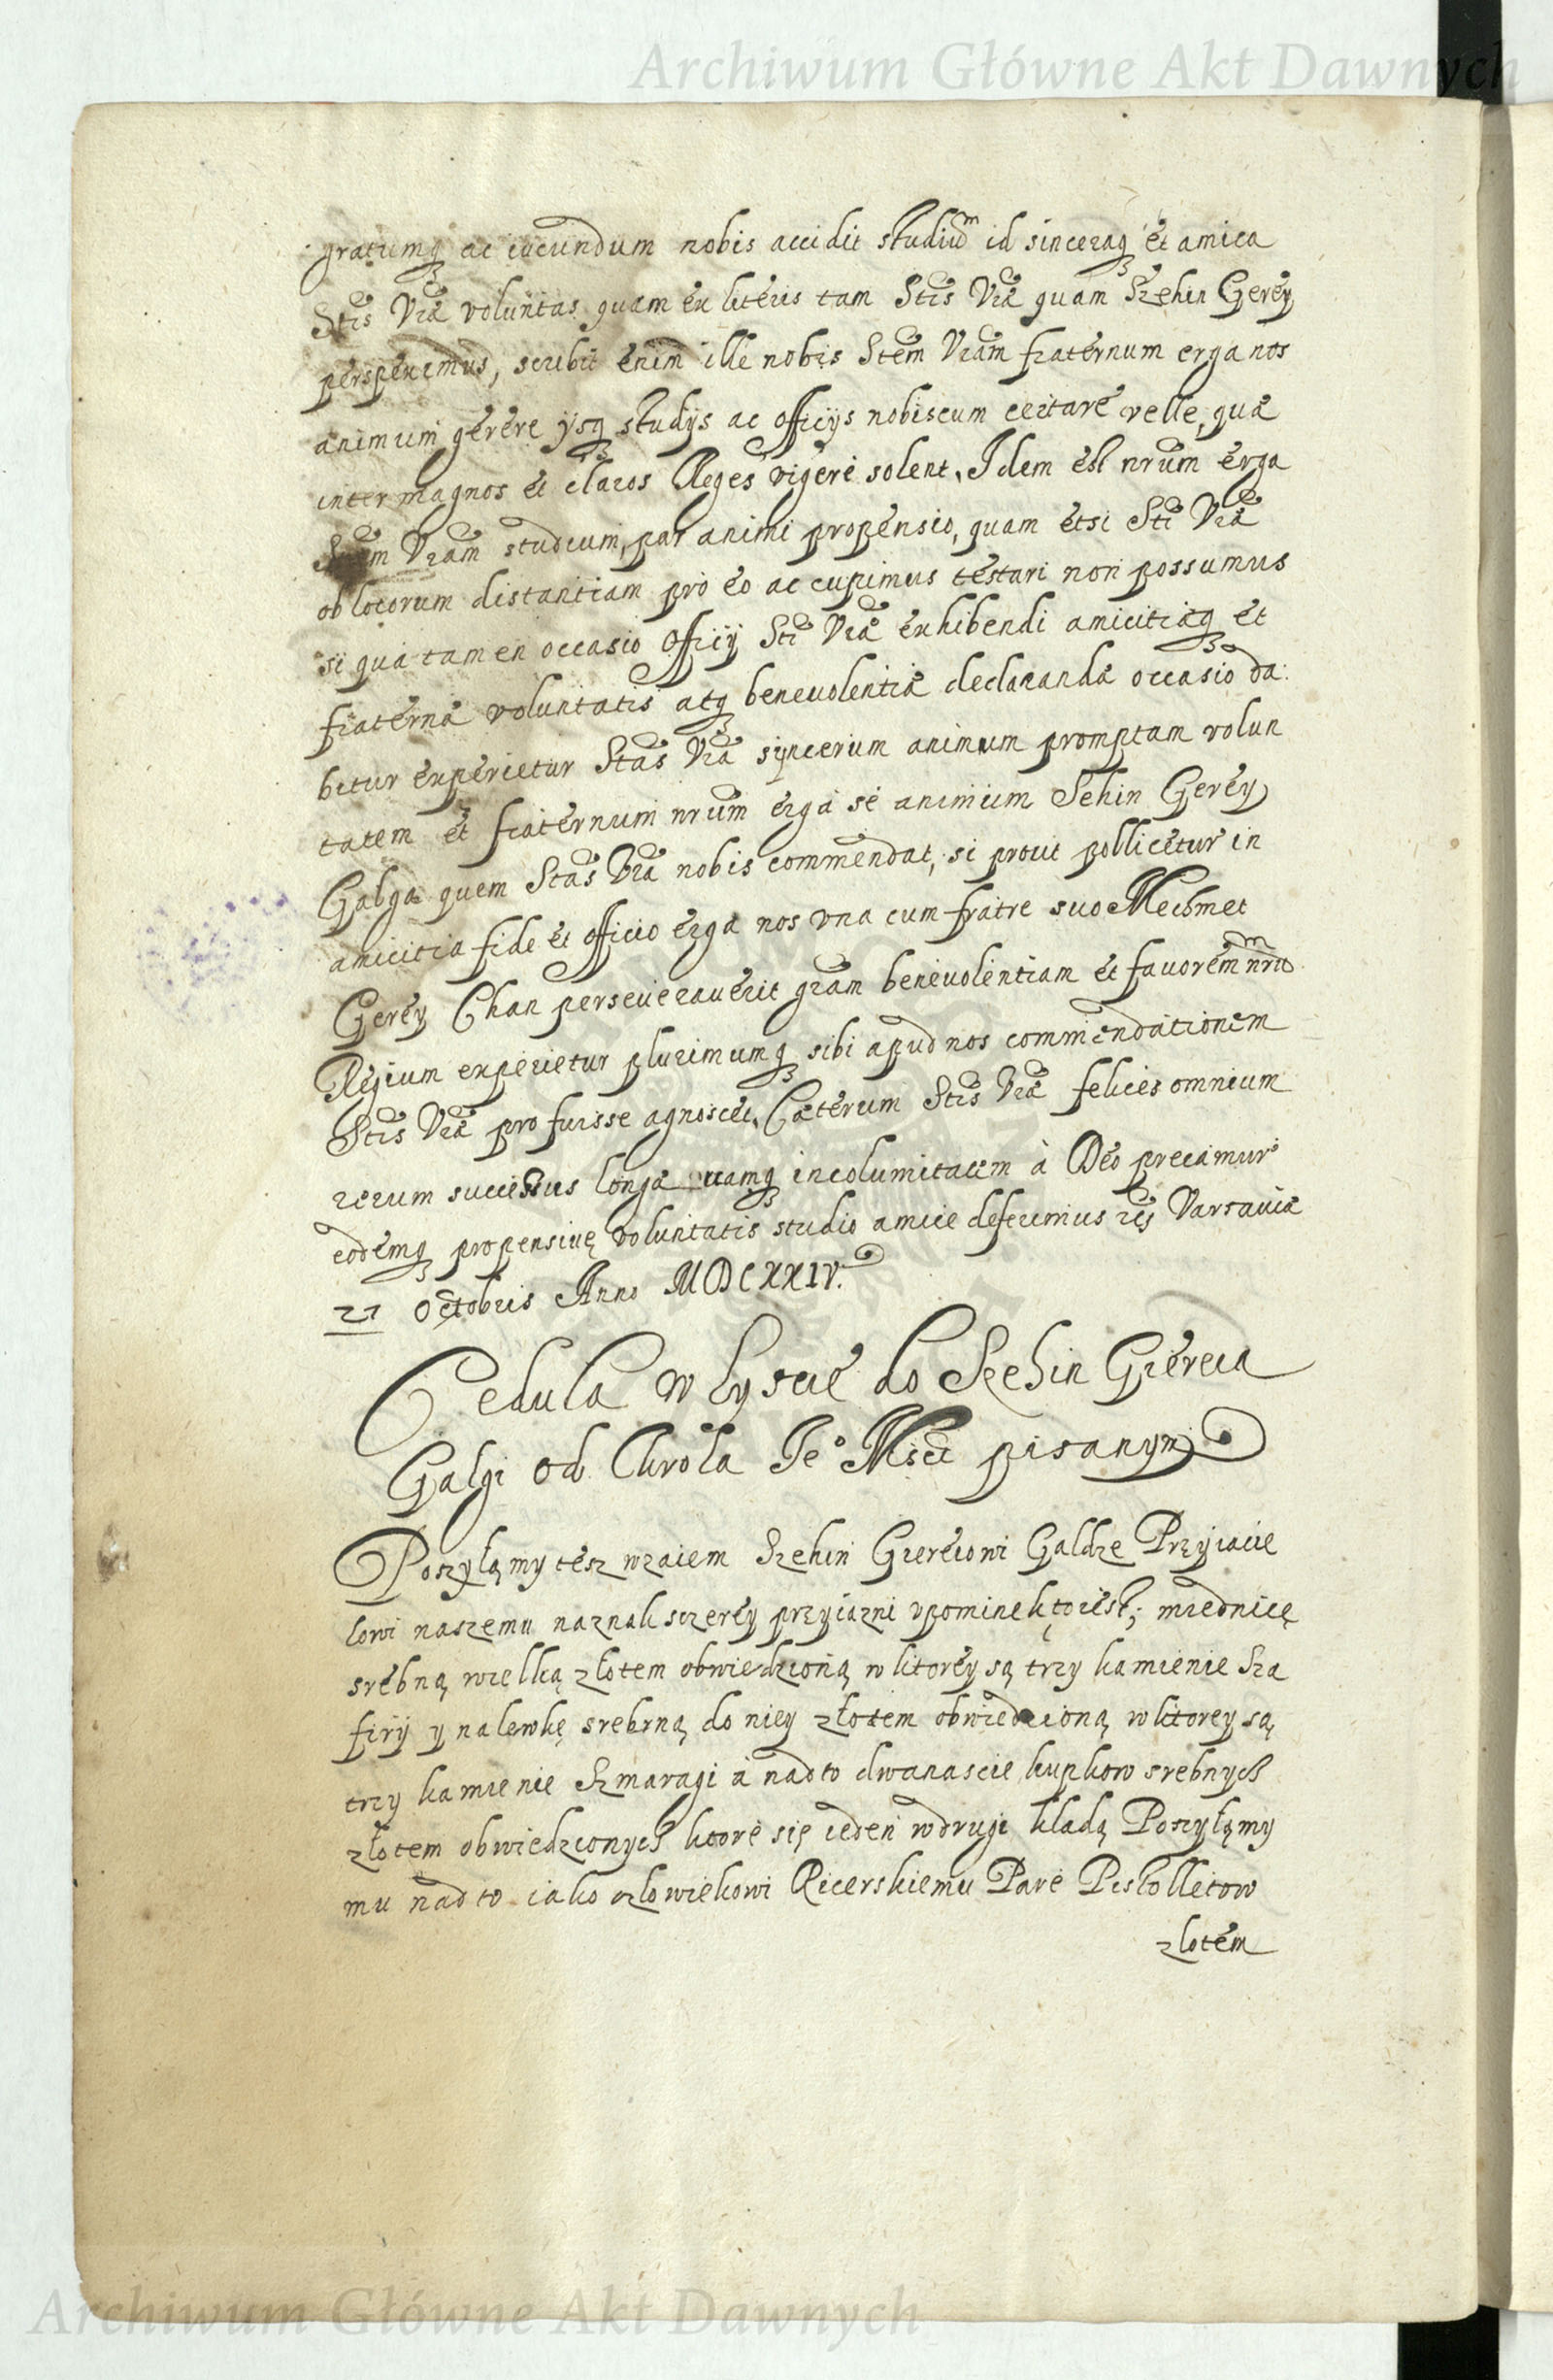 Archiwum Główne Akt Dawnych
gratumq̃ ac iucundum nobis accidit studiũm id sinceraq̃ et amica
Stis Vræ voluntas quam ex literis tam Stis Vræ quam Szehin Gerey
perspeximus, scribit enim ille nobis Stem Vram fraternum erga nos
animum gerere ysq̃ studijs ac officijs nobiscum certare velle, quæ
inter magnos et claros Reges vigere solent. Idem est nrum erga
Stem Vram studium, par animi propensio, quam etsi Sti Vræ
ob locorum distantiam pro eo ac cupimus testari non possumus
si qua tamen occasio officij Sti Vræ exhibendi amicitiæq̃ et
fraternæ voluntatis atq̃ beneuolentiæ declarandæ occasio da:
bitur experietur Stas Vra syncerum animum promptam volun
tatem et fraternum nrum erga se animum Sehin Gerey
Galga quem Stas Vra nobis commendat, si prout pollicetur in
amicitia fide et officio erga nos vna cum fratre suo Mechmet
Gerey Chan perseuerauerit gram beneuolentiam et fauorem nrũm
Regium experietur plurimumq̃ sibi apud nos commendationem
Stis Vræ profuisse agnoscet. Cæterum Stis Vræ felices omnium
rerum successus longæuamq̃ incolumitatem à Deo precamur
eodemq̃ propensiuę voluntatis studio amice deferimus Varsauiæ
21 Octobris Anno MDCXXIV.
Cedula w Lyscie do Szehin Giereia
Galgi od Chrola Je° Msci pisanym
Poszyłąmy tesz wzaiem Szehin Giereiowi Galdze Przyiacie
lowi naszemu naznak sczerey przyiazni vpominek toiest; miednicę
srebną wielką złotem obwiedzioną w ktorey są trzy kamienie Sza
firÿ y nalewkę srebrną do niey złotem obwiedzioną w ktorey są
trzy kamienie Szmaragi à nadto dwanascie kupkow srebnych
złotem obwiedzionych ktore się ieden wdrugi kladą Poszyłąmy
mu nad to iako człowiekowi Ricerskiemu Parę Pistolletow
zlotem
Archiwum Główne Akt Dawnych